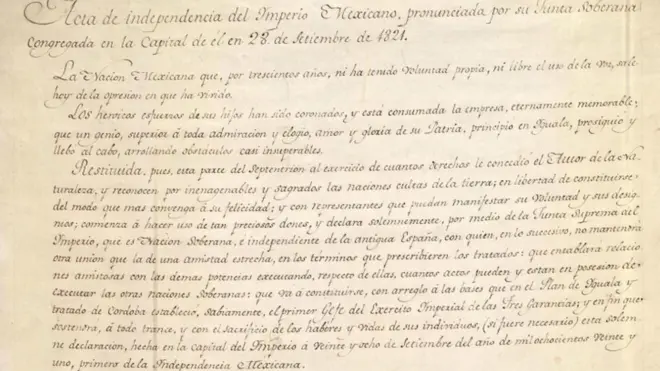 Acta de independencia del Imperio Mexicano, pronunciada por su Junta Soberana
Congregada en la Capital de él en 28 de Setiembre de 1821.
La Nacion Mexicana que, por trescientos años, ni ha tenido voluntad propia, ni libre el uso de la voz, sale
hoy de la opresion en que ha vivido.
Los heroicos esfuerzos de sus hijos han sido coronados, y está consumada la empresa, eternamente memorable,
que un genio, superior á toda admiracion y elogio, amor y gloria de su Patria, principió en Iguala, prosiguió y
llevó al cabo, arrollando obstáculos casi insuperables.
Restituida, pues, esta parte del Septentrion al exercicio de cuantos derechos le concedió el Autor de la Na-
turaleza, y reconocen por inenagenables y sagrados las naciones cultas de la tierra; en libertad de constituirse
del modo que mas convenga á su felicidad; y con representantes que puedan manifestar su voluntad y sus desig-
nios; comienza á hacer uso de tan preciosos dones, y declara solemnemente, por medio de la Junta Suprema del
Imperio, que es Nacion Soberana, é independiente de la antigua España, con quien, en lo succesivo, no mantendrá
otra union que la de una amistad estrecha, en los términos que prescribieren los tratados: que entablará relacio-
nes amistosas con las demas potencias executando, respecto de ellas, cuantos actos pueden y estan en posesion de
executar las otras naciones soberanas: que vá á constituirse, con arreglo á las bases que en el Plan de Iguala y
tratado de Cordoba estableció, sabiamente, el primer Gefe del Exercito Imperial de las Tres Garantias; y en fin que
sostendrá, á todo trance, y con el sacrificio de los haberes y vidas de sus individuos, (si fuere necesario) esta solem-
ne declaracion, hecha en la capital del Imperio á veinte y ocho de Setiembre del año de mil ochocientos veinte y
uno, primero de la Independencia Mexicana.